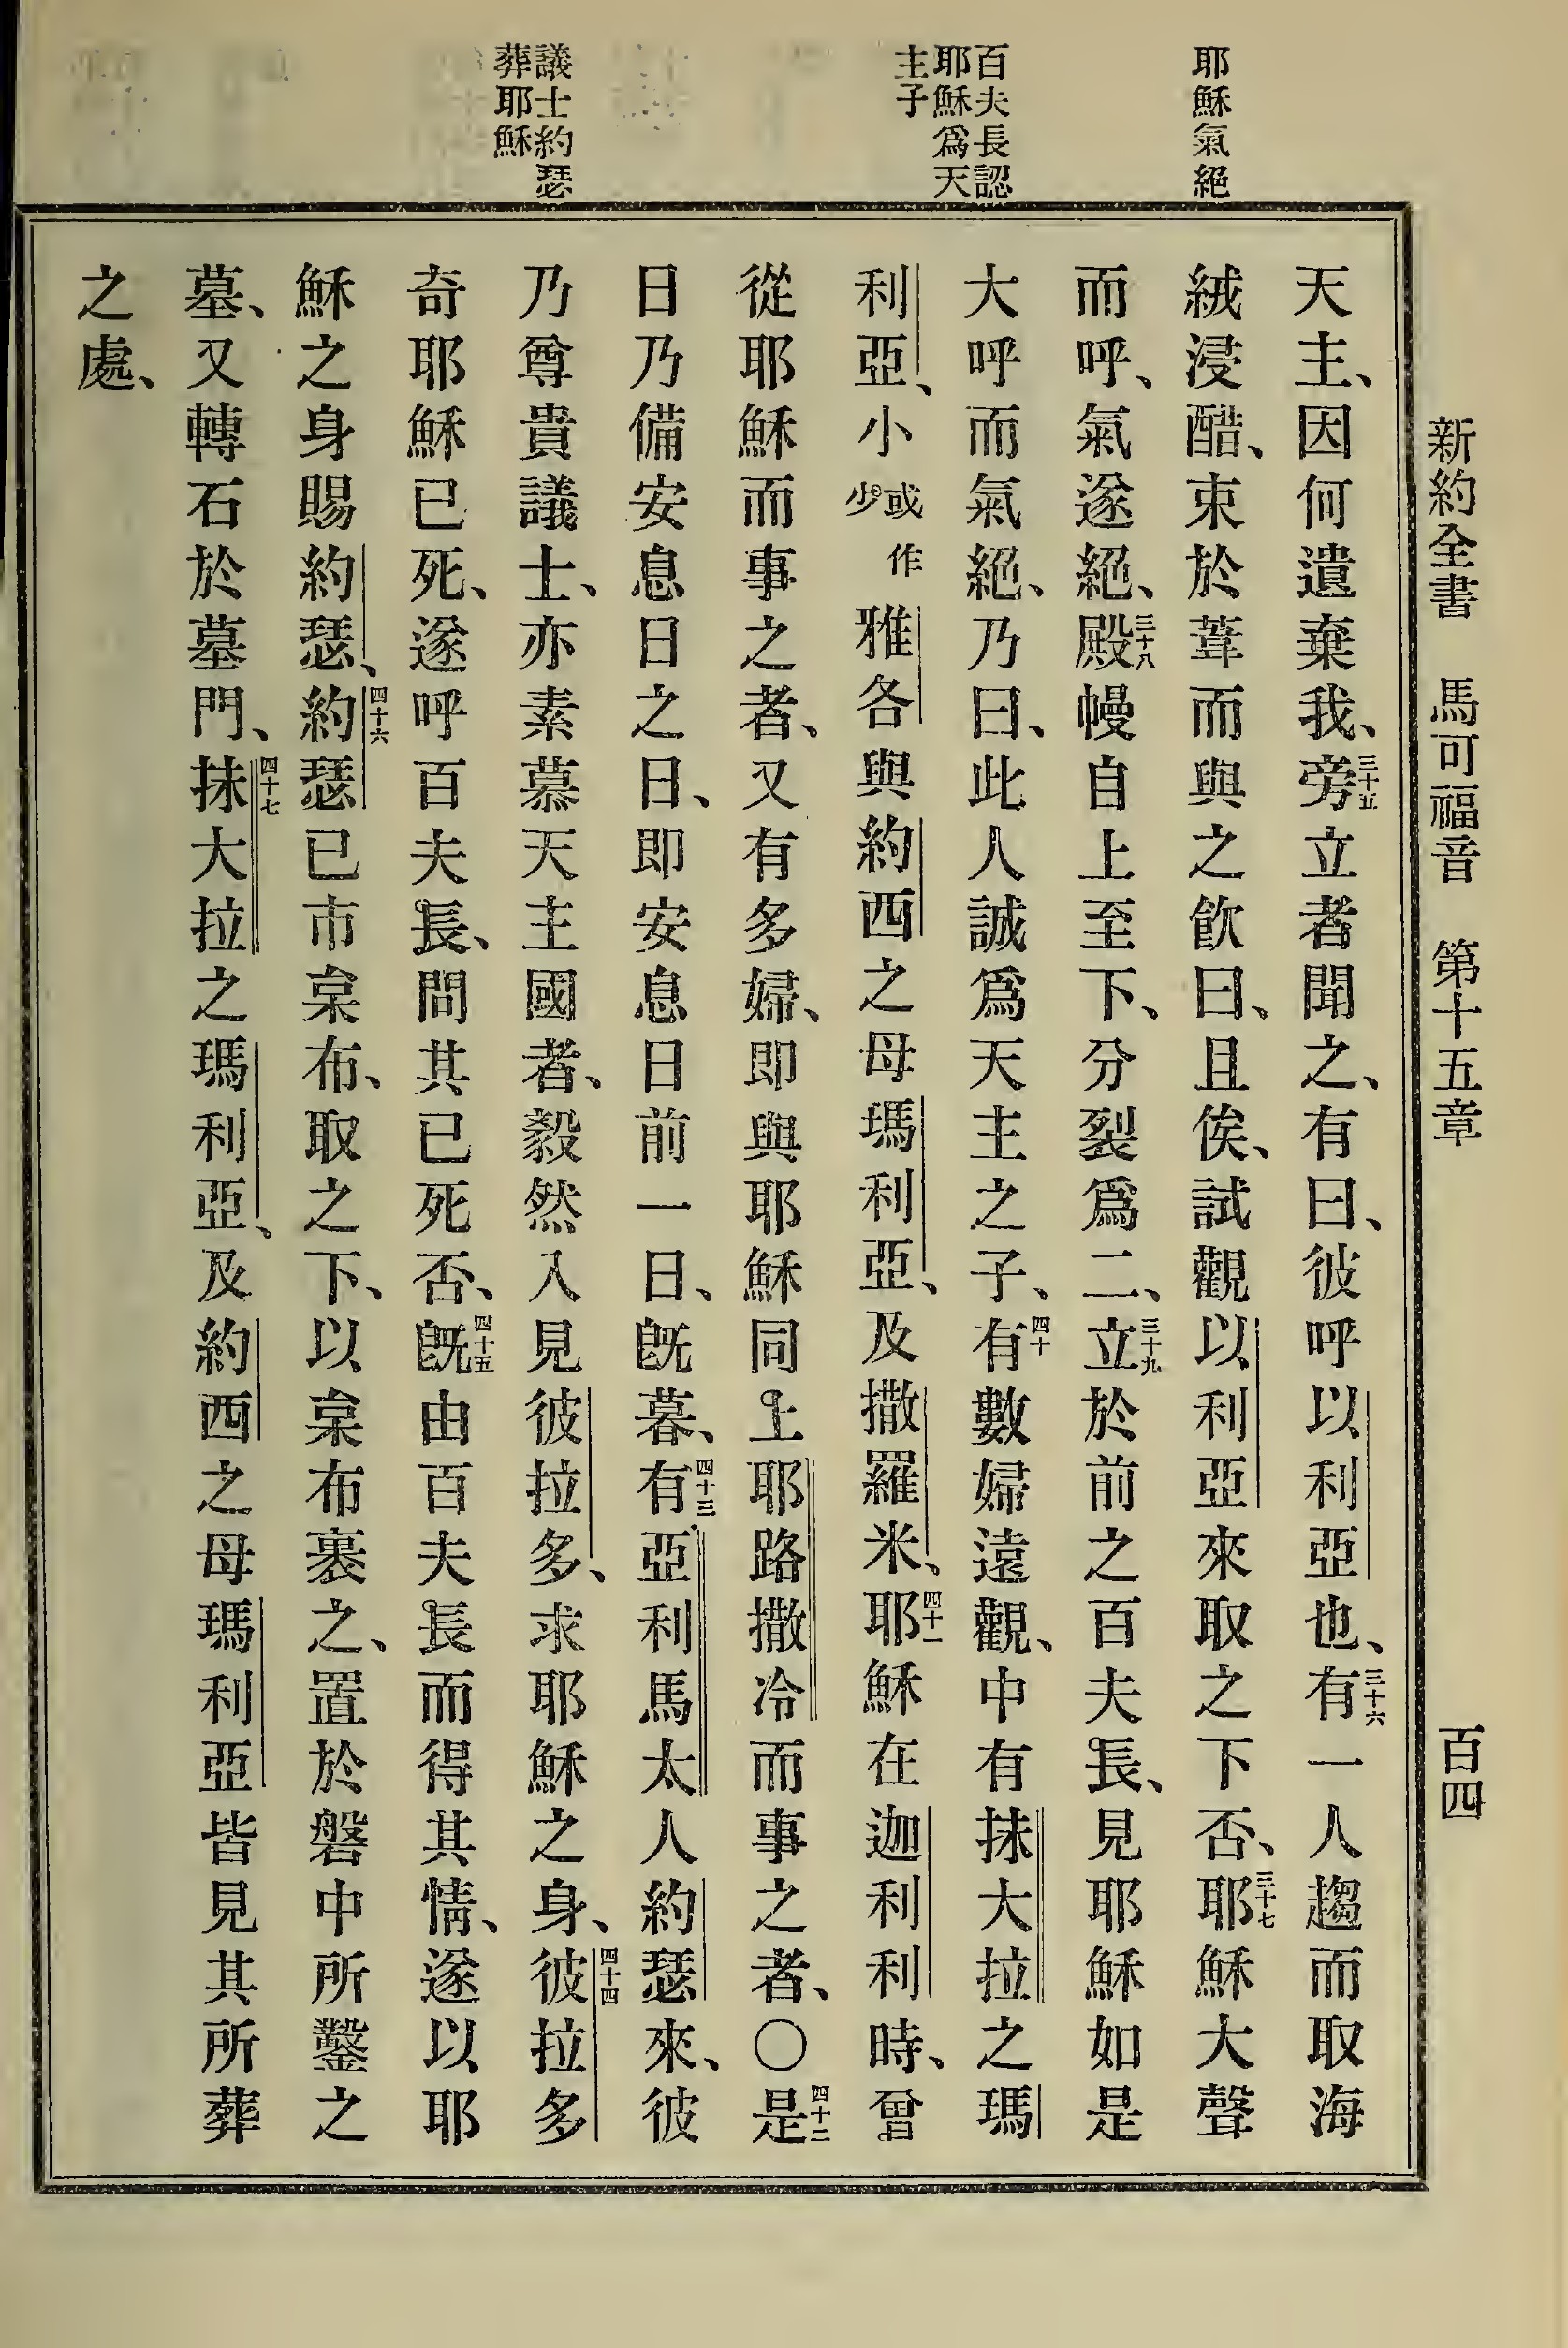 新約全書 馬可福音 第十五章 百四
耶穌氣絕
百夫長認
耶穌爲天
主子
議士約瑟
葬耶穌
天主、因何遺棄我、三十五旁立者聞之、有曰、彼呼以利亞也、三十六有一人趨而取海
絨浸醋、束於葦而與之飮曰、且俟、試觀以利亞來取之下否、三十七耶穌大聲
而呼、氣遂絕、三十八殿幔自上至下、分裂爲二、三十九立於前之百夫長、見耶穌如是
大呼而氣絕、乃曰、此人誠爲天主之子、四十有數婦遠觀、中有抹大拉之瑪
利亞、小或作少雅各與約西之母瑪利亞、及撒羅米、四十一耶穌在迦利利時、曾
從耶穌而事之者、又有多婦、即與耶穌同上耶路撒冷而事之者、〇四十二是
日乃備安息日之日、即安息日前一日、旣暮、四十三有亞利馬太人約瑟來、彼
乃尊貴議士、亦素慕天主國者、毅然入見彼拉多、求耶穌之身、四十四彼拉多
奇耶穌已死、遂呼百夫長、問其已死否、四十五旣由百夫長而得其情、遂以耶
穌之身賜約瑟、四十六約瑟已市枲布、取之下、以枲布裹之、置於磐中所鑿之
墓、又轉石於墓門、四十七抹大拉之瑪利亞、及約西之母瑪利亞皆見其所葬
之處、